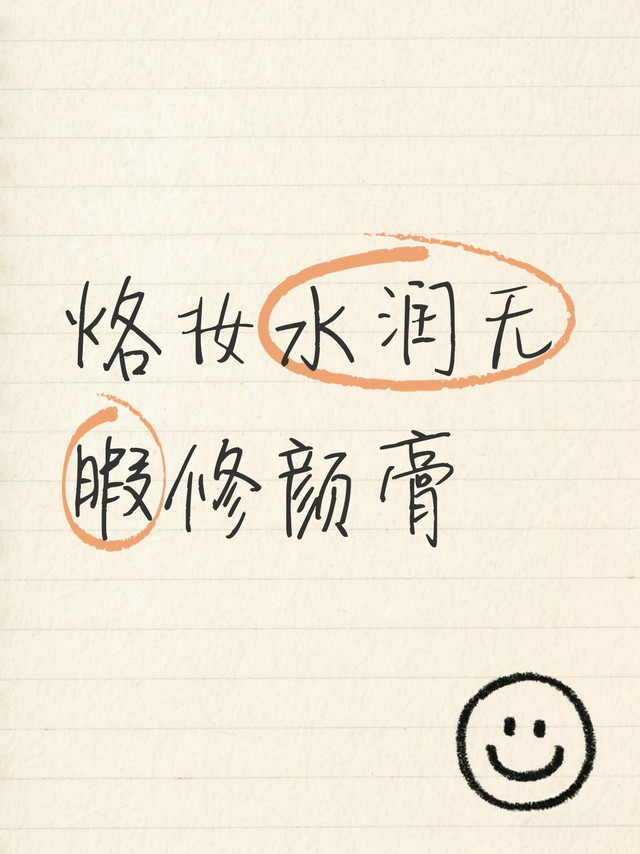 烙妆水润无
暇修颜膏